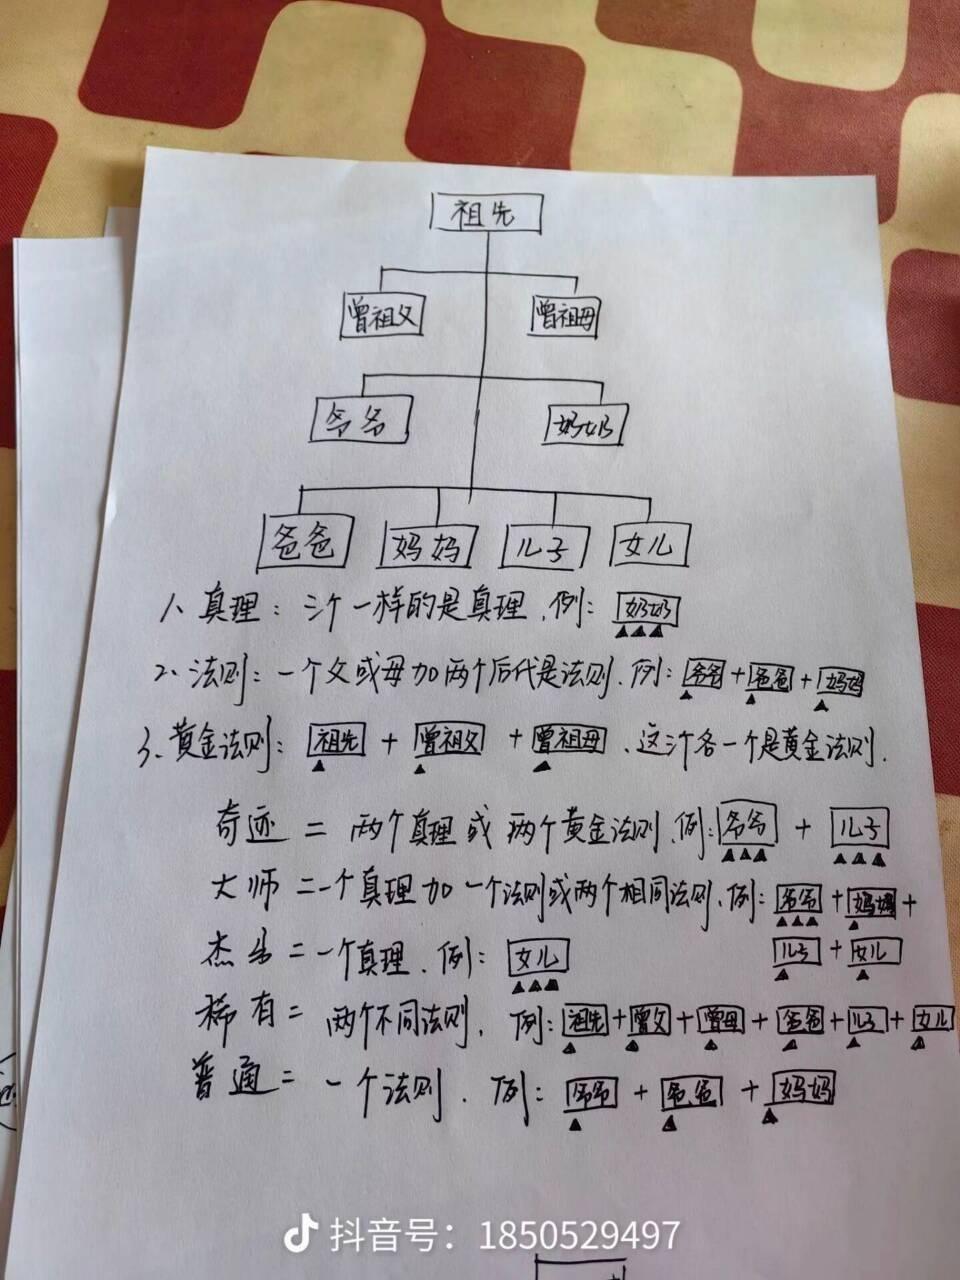 祖先
曾祖父 曾祖母
爷爷 奶奶
爸爸 妈妈 儿子 女儿
1、真理：三个一样的是真理.例：奶奶
2、法则：一个父或母加两个后代是法则.例：爷爷+爸爸+妈妈
3、黄金法则：祖先+曾祖父+曾祖母.这三个各一个是黄金法则.
奇迹=两个真理或两个黄金法则.例：爷爷+儿子
大师=一个真理加一个法则或两个相同法则.例：爷爷+妈妈+
儿子+女儿
杰出=一个真理.例：女儿
稀有=两个不同法则.例：祖先+曾父+曾母+爸爸+儿子+女儿
普通=一个法则.例：爷爷+爸爸+妈妈
抖音号：1850529497